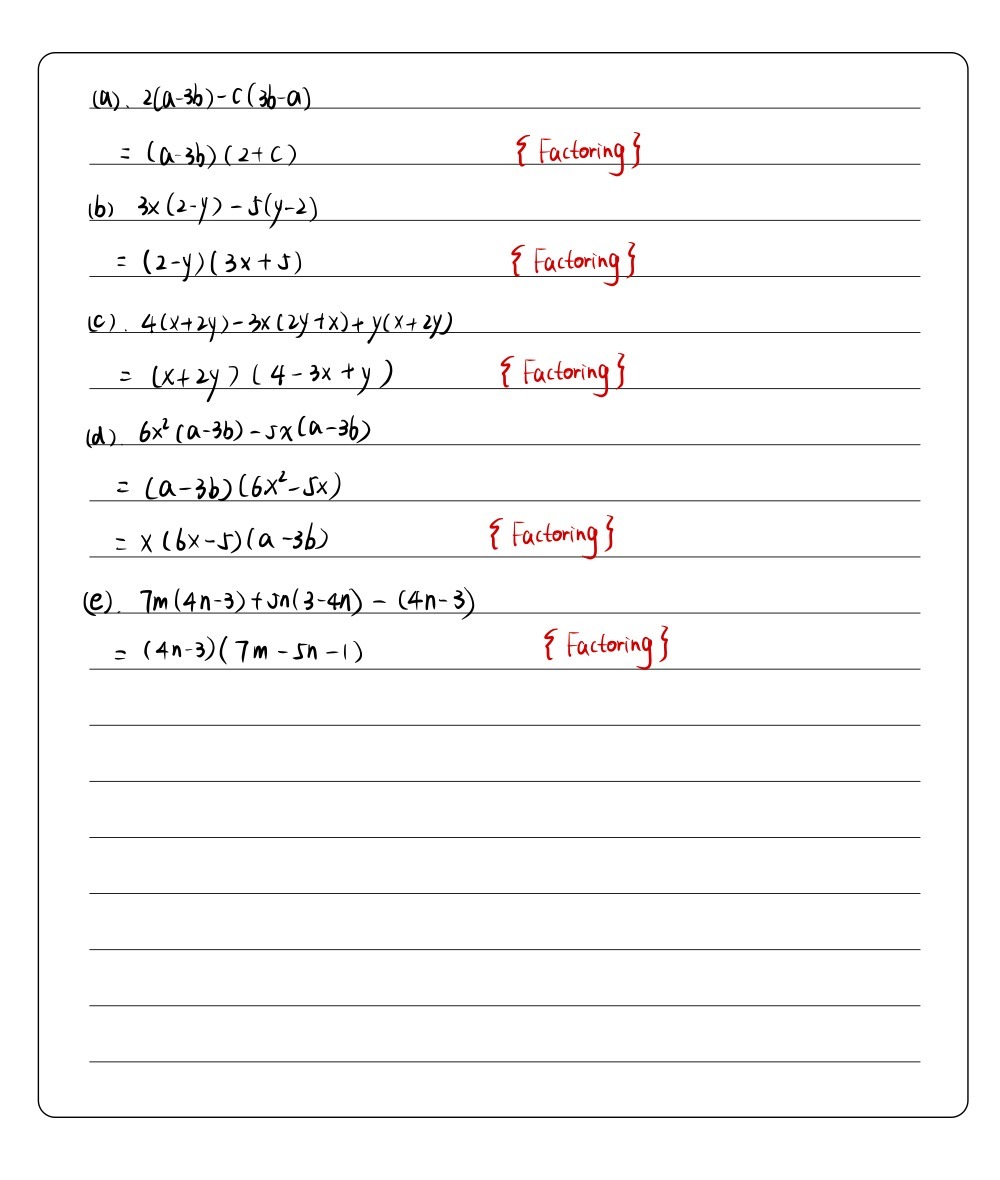 (a). 2(a-3b)-c(3b-a)
= (a-3b)(2+c) { Factoring }
(b) 3x(2-y)-5(y-2)
= (2-y)(3x+5) { Factoring }
(c). 4(x+2y)-3x(2y+x)+y(x+2y)
= (x+2y)(4-3x+y) { Factoring }
(d). 6x²(a-3b)-5x(a-3b)
= (a-3b)(6x²-5x)
= x(6x-5)(a-3b) { Factoring }
(e). 7m(4n-3)+5n(3-4n)-(4n-3)
= (4n-3)(7m-5n-1) { Factoring }